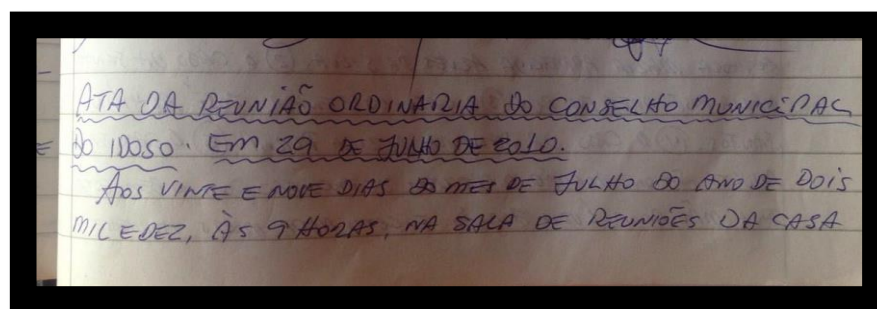 ATA DA REUNIÃO ORDINARIA DO CONSELHO MUNICIPAL
DO IDOSO. EM 29 DE JULHO DE 2010.
AOS VINTE E NOVE DIAS DO MES DE JULHO DO ANO DE DOIS
MIL E DEZ, ÀS 9 HORAS, NA SALA DE REUNIÕES DA CASA